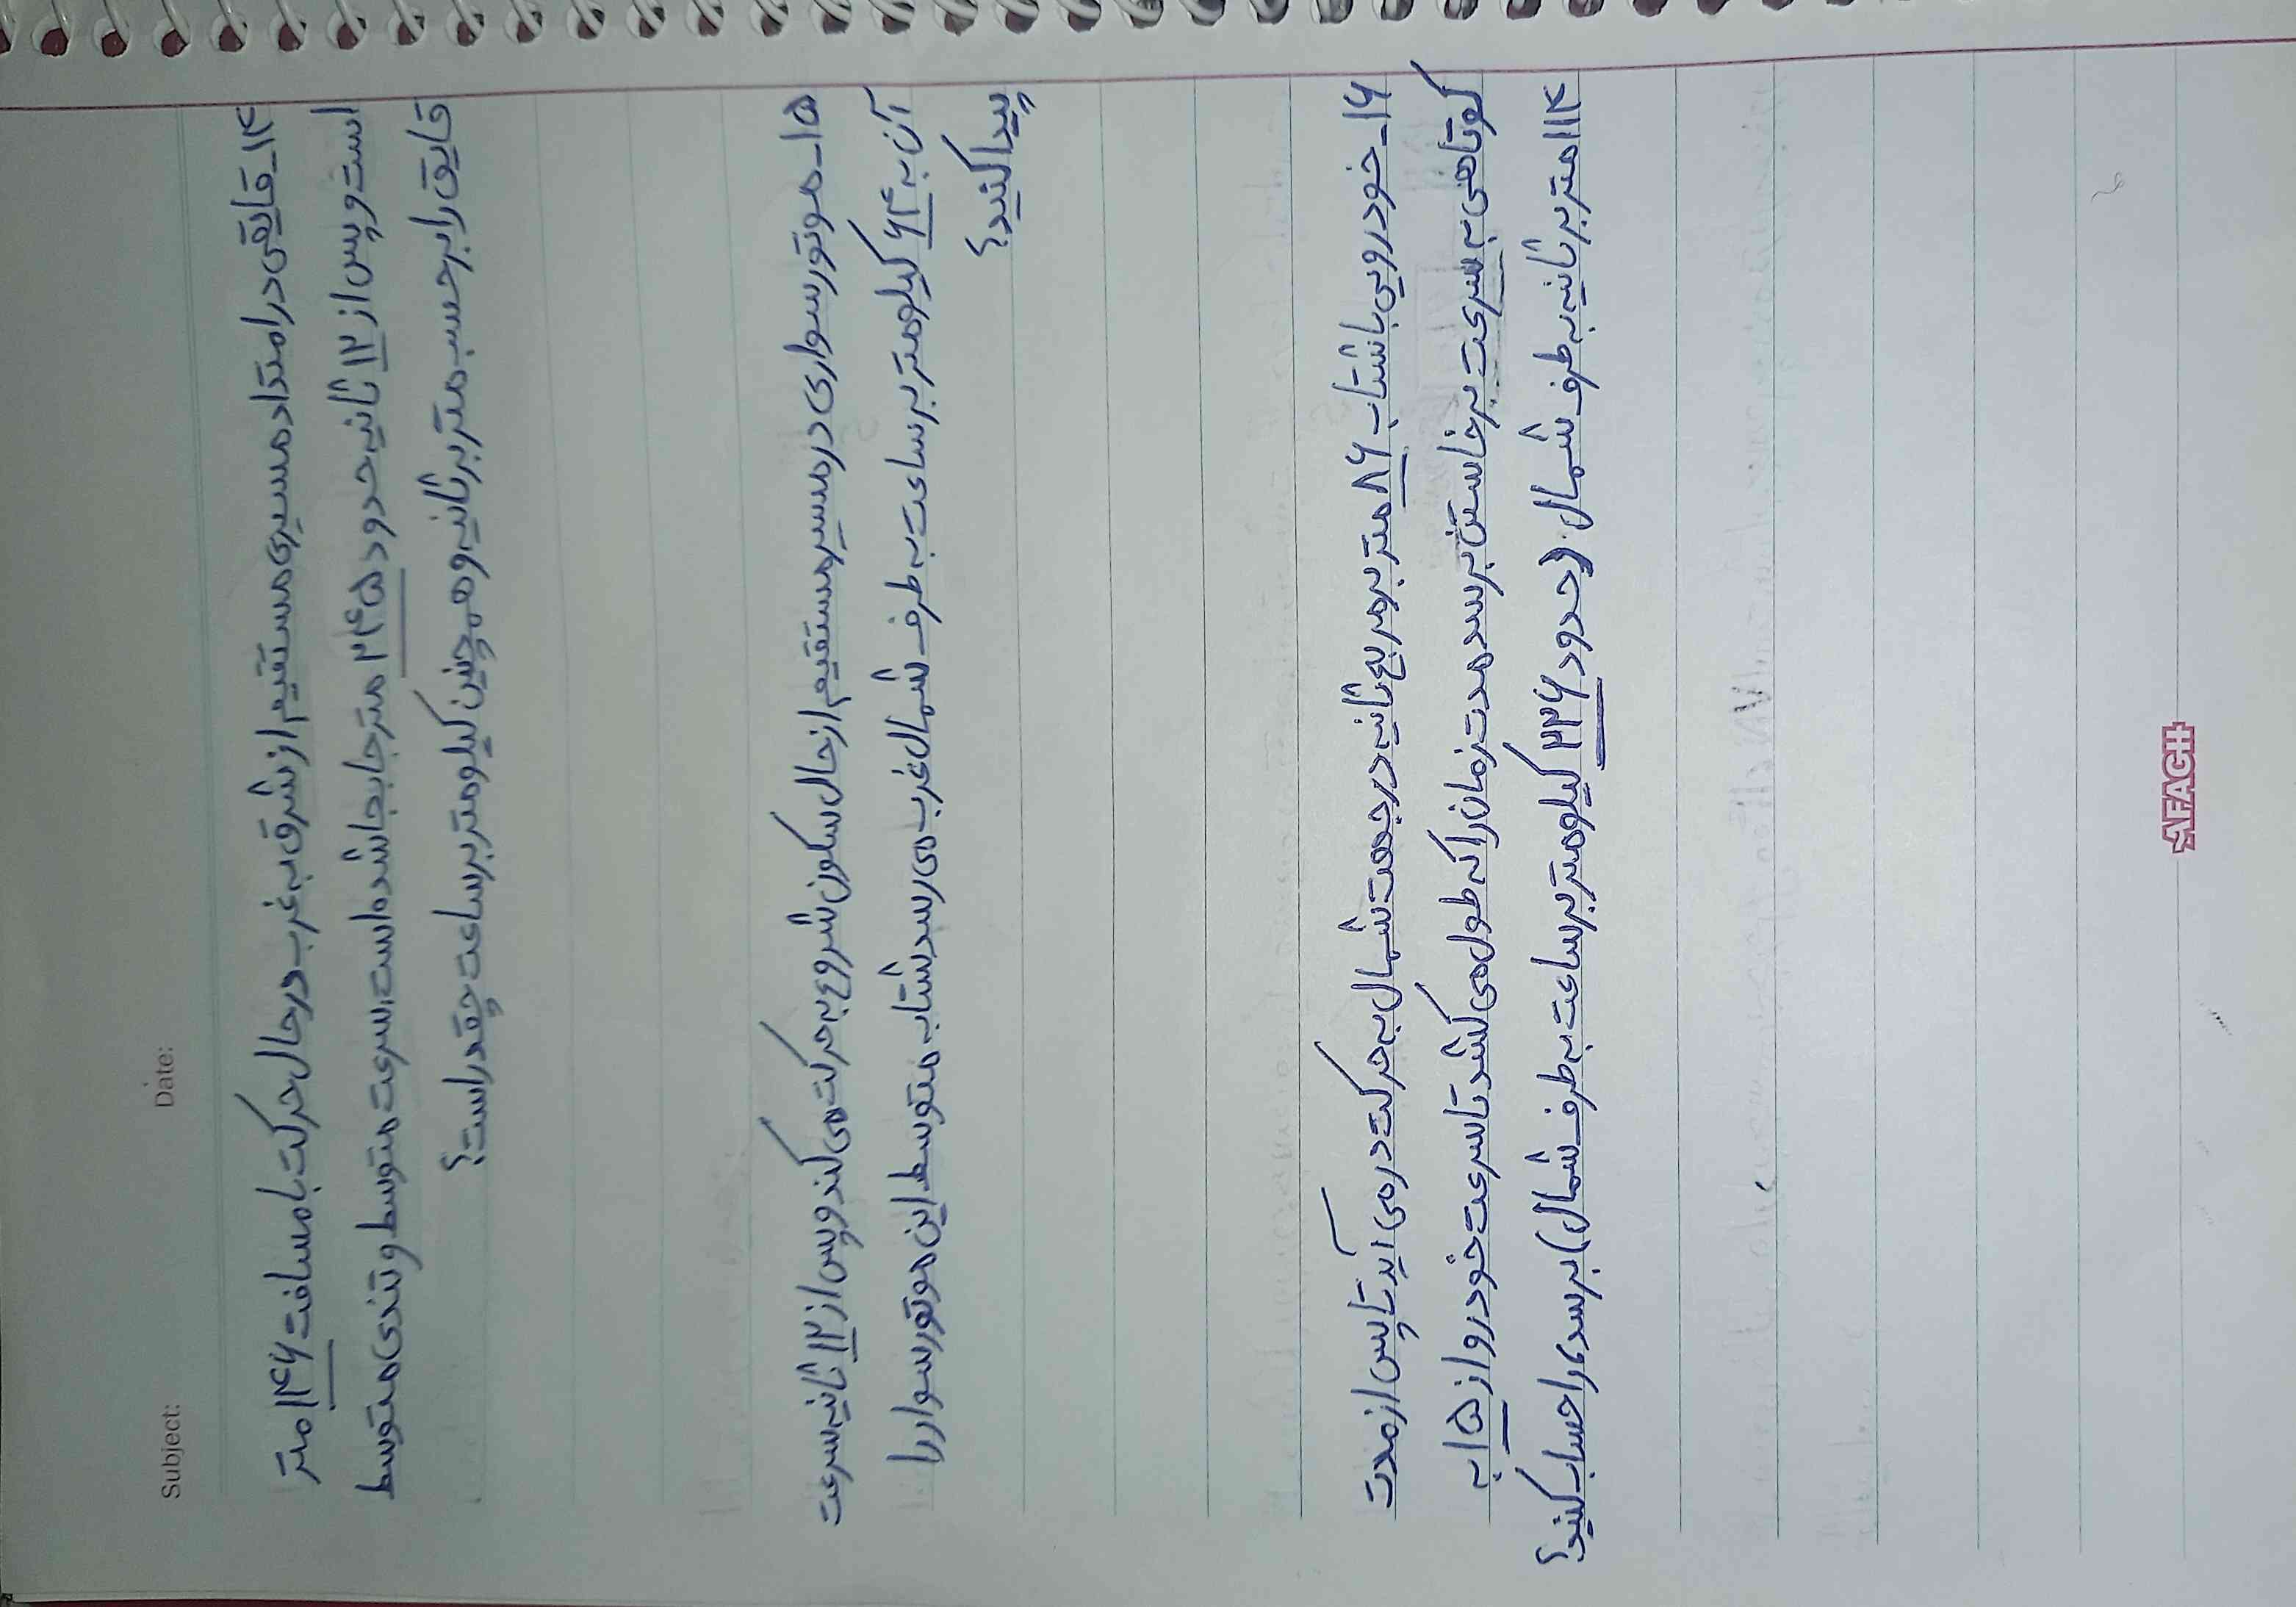 Subject:
Date:
۱۴_ قایقی در امتداد مسیری مستقیم از شرق به غرب در حال حرکت با مسافت ۱۴۶ متر
است و پس از ۱۲ ثانیه حدود ۲۴۵ متر جابجا شده است، سرعت متوسط و تندی متوسط
قایق را بر حسب متر بر ثانیه و همچنین کیلومتر بر ساعت چقدر است؟
۱۵_ موتورسواری در مسیر مستقیم از حال سکون شروع به حرکت می کند و پس از ۱۲ ثانیه سرعت
آن به ۶۴ کیلومتر بر ساعت به طرف شمال غرب می رسد شتاب متوسط این موتورسوار را
پیدا کنید؟
۱۶_ خودرویی با شتاب ۸۶ متر بر مربع ثانیه در جهت شمال به حرکت در می آید تا پس از مدت
کوتاهی به سرعت برخاستن برسد مدت زمان را که طول می کشد تا سرعت خودرو از ۱۵ به
۱۱۴ متر بر ثانیه به طرف شمال. (حدود ۲۲۶ کیلومتر بر ساعت به طرف شمال) برسدی را حساب کنید؟
AFAGH